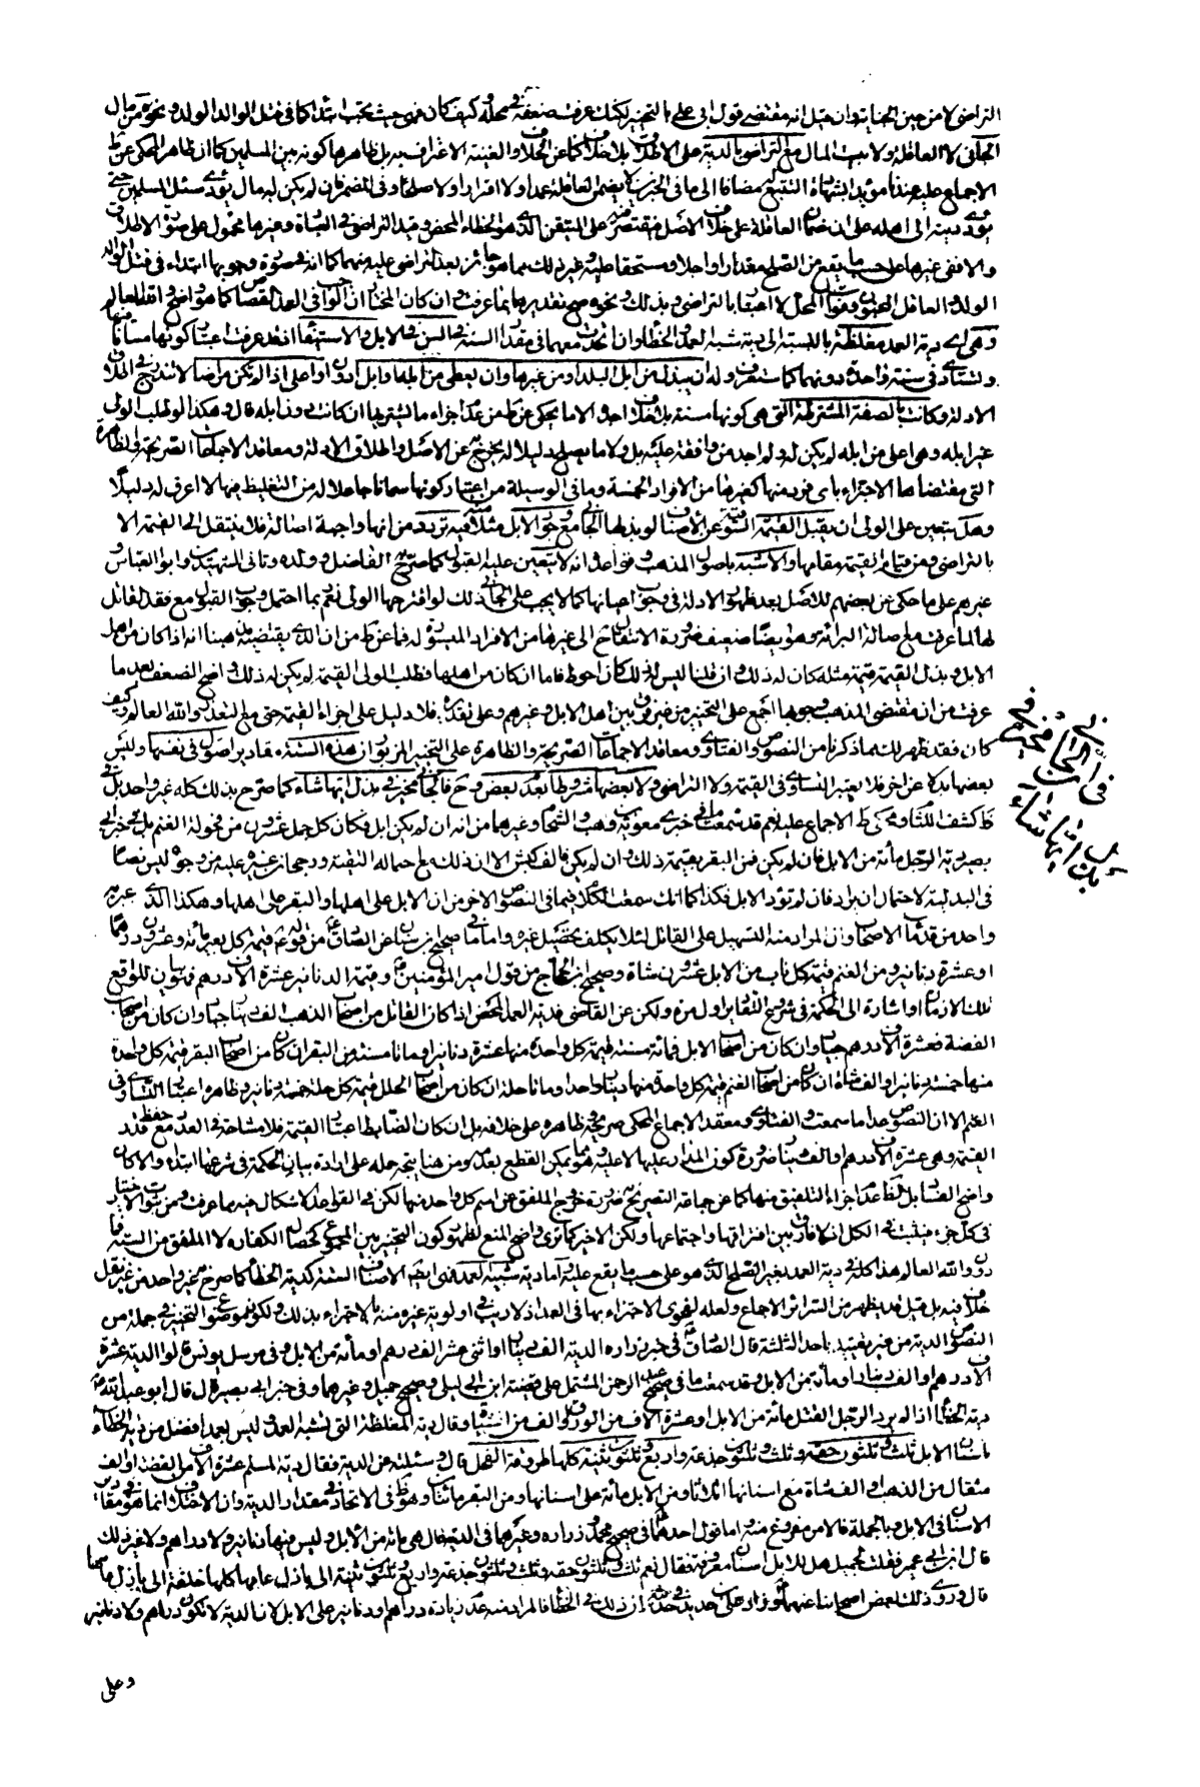 التراضى لا من حين الجناية وان قيل انه مقتضى قول ابى على بالتخيير لكنك عرفت ضعفه فى محله وكيف كان فهى حيث تجب ابتداء كما فى قتل الوالد الولد ونحوه من مال
الجانى لا العاقلة ولا بيت المال مع التراضى بالدية على الاطلاق بلا خلاف كما عن الخلاف والغنية الاعتراف به بل ظاهرهما كونه بين المسلمين كما ان ظاهر المحكى عن ط
الاجماع عليه عندنا مؤيدا بشهادة التتبع له مضافا الى ما فى الخبرين لا يضمن العاقلة عمدا ولا اقرارا ولا صلحا وفى المضمر فان لم يكن له مال يؤدى سئل المسلمين حتى
يؤدى دينه الى اهله على ان ضمان العاقلة على خلاف الاصل فيقتصر فيه على المتيقن الذى هو الخطاء المحض وقيد التراضى فى العبارة وغيرها محمول على صورة الاطلاق
والا ففى غيرها على حسب ما يقع من الصلح مقدارا واجلا ومستحقا عليه وغير ذلك مما هو جائز بعد التراضى عليه منهما كما انه فى صورة وجوبها ابتداء فى قتل الوالد
الولد والعاقل المجنون وفوات المحل لا اعتبار بالتراضى
وهى اى دية العمد مغلظة بالنسبة الى دية شبه العمد والخطأ وان اتحدت معهما فى مقدار السنة فى السن فى الابل والاستيفاء اذ قد عرفت اعتبار كونها مسانا
وتستادى فى سنة واحدة دونهما كما ستعرف وله ان يبذل من ابل البلد او من غيرها وان يعطى من ابله او ابل ادون او اعلى اذا لم تكن مراضا لا تندرج فى اطلاق
الادلة وكانت بالصفة المشترطة التى هى كونها مسنة بلا خلاف اجده الا ما يحكى عن ط من عدم اجزاء ما يشتريها ان كانت دون ابله قال وهكذا لو طلب الولى
غير ابله وهى اعلى من ابله لم يكن له ولم اجد من وافقه عليه بل ولا ما يصلح دليلا له يخرج به عن الاصل واطلاق الادلة ومعاقد الاجماعات الصريحة والظاهرة
التى مقتضاها الاجتزاء باى فرد منها كغيرها من الافراد الخمسة وما فى الوسيلة من اعتبار كونها سمانا جاعلا له من التغليظ فيها لا اعرف له دليلا
وهل يتعين على الولى ان يقبل القيمة السوقية عن الاصناف لو بذلها الجانى مع وجود الابل مثلا فيه تردد من انها واجبة اصالة فلا ينتقل الى القيمة الا
بالتراضى ومن قيام القيمة مقامها والاشبه باصول المذهب وقواعده انه لا يتعين عليه القبول كما صرح به الفاضل وولده وثانى الشهيدين وابو العباس
غيرهم على ما حكى عن بعضهم للاصل بعد ظهور الادلة فى وجوب اعيانها كما لا يجب على الجانى ذلك لو اقترحها الولى نعم ربما احتمل وجوب القبول مع فقد القاتل
لها لما عرفت مع اصالة البرائة وهو ايضا ضعيف ضرورة الانتقال ح الى غيرها من الافراد الميسورة له فما عن ط من ان الذى يقتضيه مذهبنا انه اذا كان من اهل
الابل وبذل القيمة قيمة مثله كان له ذلك وان قلنا ليس له ذلك كان احوط فاما ان كان من اهلها فطلب الولى القيمة لم يكن له ذلك واضح الضعف بعد ما
عرفت من ان مقتضى المذهب وجوبها اجمع على التخيير من غير فرق بين اهل الابل وغيرهم وعلى تقديره فلا دليل على اجزاء القيمة حتى مع التعذر والله العالم وكيف
كان فقد ظهر لك مما ذكرنا من النصوص والفتاوى ومعاقد الاجماعات الصريحة والظاهرة على التخيير المزبور ان هذه الستة مقادير اصول فى نفسها وليس
بعضها بدلا عن اخر فلا يعتبر التساوى فى القيمة ولا التراضى ولا بعضها مشروطا بعدم بعض وح فالجانى مخير فى بذل ايها شاء كما صرح بذلك كله غير واحد بل فى
ظ كشف اللثام كمحكى ط الاجماع عليه نعم قد سمعت ما فى خبرى معوية بن وهب والشحام وغيرهما من انه ان لم يكن ابل فمكان كل جمل عشرون من فحولة الغنم بل فى خبر ابى
بصير دية الرجل مأة من الابل فان لم يكن فمن البقر بقيمة ذلك وان لم يكن فالف كبش الا ان ذلك مع احتماله التقية ورجحان غيره عليه من وجوه ليس نصا
فى البدلية لاحتمال ان يراد فان لم تؤد الابل فكذا كما انك سمعت الكلام فيما فى النصوص الاخر من ان الابل على اهلها والبقر على اهلها وهكذا الذى عبر به
واحد من قدماء الاصحاب وان المراد منه التسهيل على القاتل لئلا يكلف تحصيل غيره واما ما فى صحيح ابن سنان عن الصادق ع من قوله ع قيمة كل بعير مائة وعشرون درهما
او عشرة دنانير ومن الغنم قيمة كل ناب من الابل عشرون شاة وصحيح ابن الحجاج من قول امير المؤمنين ع وقيمة الدنانير عشرة الاف درهم فهو بيان للواقع
تلك الازمنة او اشارة الى الحكمة فى شرع التقدير اول مرة ولكن عن القاضى فدية العمد المحض اذا كان القاتل من اصحاب الذهب الف دينار جيادا وان كان من اصحاب
الفضة فعشرة الاف درهم جيادا وان كان من اصحاب الابل فمائة مسنة قيمة كل واحدة منها عشرة دنانير او مائتا مسنة من البقر ان كان من اصحاب البقر قيمة كل واحدة
منها خمسة دنانير او الف شاة ان كان من اصحاب الغنم قيمة كل واحدة منها دينار واحد او مائتا حلة ان كان من اصحاب الحلل قيمة كل حلة خمسة دنانير وظاهره اعتبار التساوى فى
القيم الا ان النصوص عدا ما سمعت والفتاوى ومعقد الاجماع المحكى صريحه وظاهره على خلافه بل ان كان الضابط اعتبار القيمة فلا مشاحة فى العدد مع حفظ قدر
القيمة وهى عشرة الاف درهم او الف دينار ضرورة كون المدار عليها لا عليه وهو مما يمكن القطع بعدمه ومن هنا يتجه حمله على ارادة بيان الحكمة فى شرعها ابتداء والا كان
واضح الفساد
فى كل جزء فيثبت فى الكل اذ لا فارق بين افتراقها واجتماعها ولكن الاخير كما ترى واضح المنع لظهور كون التخيير بين المجموع كخصال الكفارة لا الملفق من الستة
والله العالم هذا كله فى دية العمد بغير الصلح الذى هو على حسب ما يقع عليه واما دية شبيه العمد فهى ايضا الاصناف الستة كدية الخطأ كما صرح به غير واحد من غير نقل
خلاف فيه بل قيل قد يظهر من السرائر الاجماع ولعله لفحوى الاجتزاء بها فى العمد اذ لا ريب فى اولوية غيره منه بالاجتزاء بذلك
النصوص الدية من غير تقييد باحد الثلثة قال الصادق ع فى خبر زرارة الدية الف دينار او اثنى عشر الف درهم او مأة من الابل وفى مرسل يونس قالوا الدية عشرة
الاف درهم او الف دينار او مأة من الابل وقد سمعت ما فى صحيح عبد الرحمن المشتمل على قضية ابن ابى ليلى وصحيح جميل وغيرهما وفى خبر ابى بصير قال قال ابو عبد الله ع
دية الخطأ اذا لم يرد الرجل القتل مائة من الابل او عشرة الاف من الورق او الف من الشاة وقال دية المغلظة التى تشبه العمد وليس بعمد افضل من دية الخطاء
باسنان الابل ثلث وثلثون حقة وثلث وثلثون جذعة واربع وثلثون ثنية كلها طروقة الفحل قال وسئلته عن الدية فقال دية المسلم عشرة الاف من الفضة او الف
مثقال من الذهب او الف شاة مع اسنانها اثلاثا ومن الابل مأة على اسنانها ومن البقر مائتان وهو ظ فى الاتحاد فى مقدار الدية وان الاختلاف انما هو فى مقادير
الاسنان فى الابل وبالجملة فالامر مفروغ منه واما قول احدهما ع فى صحيح محمد وزرارة وغيرهما فى الدية قال هى مائة من الابل وليس فيها دنانير ولا دراهم ولا غير ذلك
قال ابن ابى عمير فقلت لجميل هل للابل اسنان معروفة فقال نعم ثلث وثلثون حقة وثلث وثلثون جذعة واربع وثلثون ثنية الى بازل عامها كلها خلفة الى بازل عامها
قال وروى ذلك بعض اصحابنا عنهما ع وزاد على بن حديد فى حديثه ان ذلك فى الخطأ فالمراد منه عدم زيادة دراهم ودنانير على الابل لا ان الدية لا تكون دراهم ولا دنانير
وعلى
فى الجانى مخير فى
بذل ايها شاء